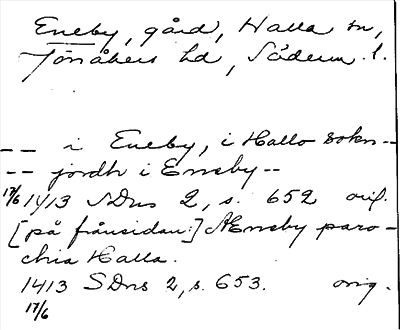 Eneby, gård, Halla sn,
Jönåkers hd, Söderm. l.
-- i Eneby, i Hallo sokn--
-- jordh i Ensby--
17/6 1413 SDns 2, s. 652 orig.
[på frånsidan:] Ænsby paro-
chia Halla.
1413 SDns 2, s. 653. orig.
17/6